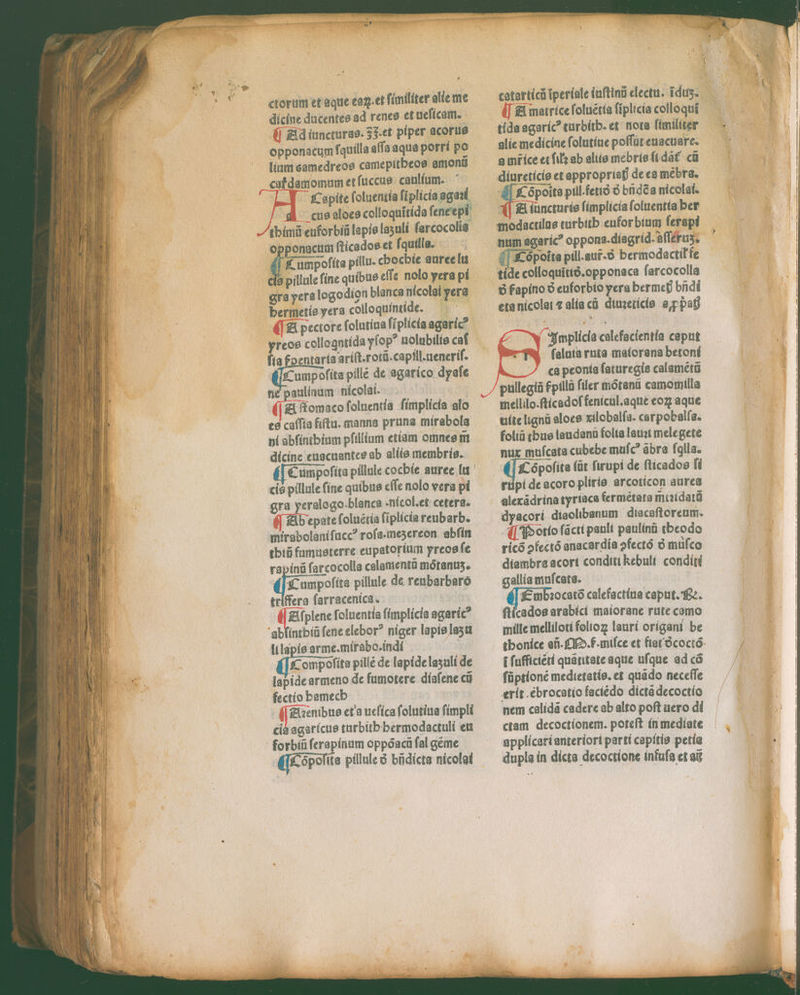 ctorum et aque eaꝝ. et ſimiliter alie me
dicine ducentes ad renes et ueſicam.
¶ Ad iuncturas. ʒʒ. et piper acorus
opponacum ſquilla aſſa aqua porri po
lium camedreos camepitheos amonū
cardamomum et ſuccus caulium.
A Capite ſoluentia ſiplicia agari
cus aloes colloquītida ſene epi
thimū euforbiū lapis lazuli ſarcocolla
opponacum ſticados et ſquilla.
¶ Cumpoſita pillu. chochie auree lu
cis pillule ſine quibus eſſe nolo yera pi
gra yera logodion blanca nicolai yera
hermetis yera colloquintide.
¶ A pectore ſolutiua ſiplicia agaricꝰ
yreos colloqntida yſopꝰ uolubilis caſ
ſia ariſt. rotū. capill. ueneriſ.
¶ Cumpoſita pille de agarico dyaſe
ne paulinum nicolai.
¶ A ſtomaco ſoluentia ſimplicia alo
es caſſia fiſtu. manna pruna mirabola
ni abſinthium pſillium etiam omnes m̄
dicine euacuantes ab aliis membris.
¶ Cumpoſita pillule cochie auree lu
cis pillule ſine quibus eſſe nolo yera pi
gra yeralogo. blanca .nicol. et cetera.
¶ Ab epate ſoluētia ſiplicia reubarb.
mirabolani ſuccꝰ roſa. mezereon abſin
thiū fumusterre eupatorium yreos ſe
rapinū ſarcocolla calamentū mōtanuʒ.
¶ Cumpoſita pillule de reubarbaro
triffera ſarracenica.
¶ A ſplene ſoluentia ſimplicia agaricꝰ
abſinthiū ſene eleborꝰ niger lapis lazu
li lapis arme. mirabo. indi
¶ Compoſita pille de lapide lazuli de
lapide armeno de fumotere diaſene cū
fectio hamech
¶ A renibus et a ueſica ſolutiua ſimpli
cia agaricus turbith hermodactuli eu
forbiū ſerapinum oppōacū ſal gēme
¶ Cōpoſita pillule ō bn̄dicta nicolai
catarticū īperiale iuſtinū electu. īduʒ.
¶ A matrice ſoluētia ſiplicia colloquī
tida agaricꝰ turbith. et nota ſimiliter
alie medicine ſolutiue poſſūt euacuare.
a mr̄ice et ab aliis mēbris ſi cū
diureticis et appropriatꝭ de ea mēbra.
¶ Cōpoīta pill. fetid ō bn̄dēa nicolai.
¶ A iuncturis ſimplicia ſoluentia her
modactilus turbith euforbium ſerapi
num agaricꝰ oppona. diagrid. aſſeruʒ.
¶ Cōpoīta pill. aur̄. ō hermodactil fe
tide colloquītid. opponaca ſarcocolla
ō ſapino ō euforbio yera hermetꝭ bn̄di
cta nicolai ⁊ alia cū diureticis
Simplicia calefacientia caput
ſaluia ruta maiorana betoni
ca peonia ſaturegia calamētū
pullegiū ſiler mōtanū camomilla
mellilo. ſticadoſ fenicul. aque eoꝝ aque
uite lignū aloes xilobalſa. carpobalſa.
foliū thus laudanū folia lauri melegete
nux muſcata cubebe muſcꝰ ābra
¶ Cōpoſita ſūt ſirupi de ſticados ſi
rupi de acoro pliris arcoticon aurea
alexādrina tyriaca fermētata mitridatū
dyacori diaolibanum diacaſtoreum.
¶ Potio ſācti pauli paulinū theodo
ricō ꝯfectō anacardia ꝯfectō ō muſco
diambra acori conditi kebuli conditi
gallia muſcata.
¶ Embrocatō calefactiua caput. ℞.
ſticados arabici maiorane rute camo
mille melliloti folioꝝ lauri origani be
thonice an̄. M. f. miſce et fiat dcoctō
ī ſufficiēti quātitate aque uſque ad cō
ſūptionē medietatis. et quādo neceſſe
erit .ēbrocatio faciēdo dictā decoctio
nem calidā cadere ab alto poſt uero di
ctam decoctionem. poteſt in mediate
applicari anteriori parti capitis petia
dupla in dicta decoctione infuſa et